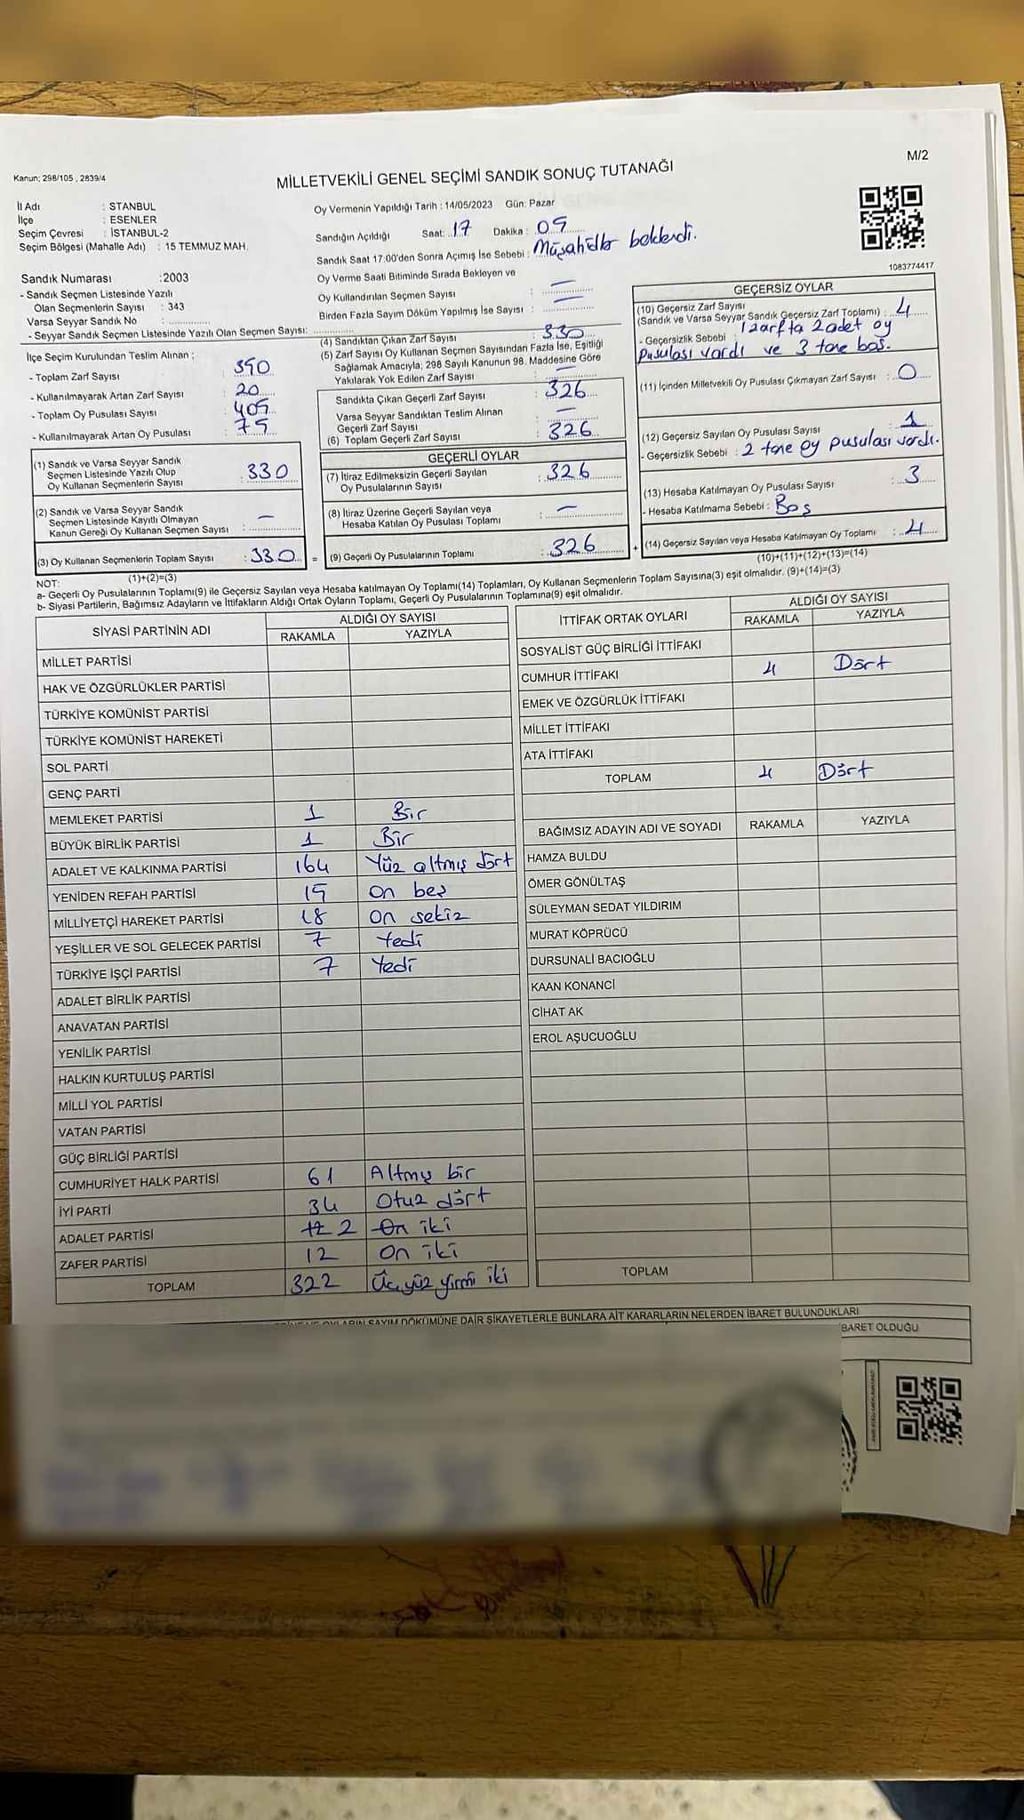 M/2
Kanun; 298/105 , 2839/4
MİLLETVEKİLİ GENEL SEÇİMİ SANDIK SONUÇ TUTANAĞI
İl Adı : STANBUL
İlçe : ESENLER
Seçim Çevresi : İSTANBUL-2
Seçim Bölgesi (Mahalle Adı) : 15 TEMMUZ MAH.
Oy Vermenin Yapıldığı Tarih : 14/05/2023 Gün: Pazar
Sandığın Açıldığı Saat: 17 Dakika : 09
Sandık Saat 17:00'den Sonra Açımış İse Sebebi : Müşahidler beklendi.
Oy Verme Saati Bitiminde Sırada Bekleyen ve
Oy Kullandırılan Seçmen Sayısı : —
Birden Fazla Sayım Döküm Yapılmış İse Sayısı : —
1083774417
Sandık Numarası :2003
- Sandık Seçmen Listesinde Yazılı
Olan Seçmenlerin Sayısı : 343
Varsa Seyyar Sandık No :
- Seyyar Sandık Seçmen Listesinde Yazılı Olan Seçmen Sayısı:
İlçe Seçim Kurulundan Teslim Alınan ;
- Toplam Zarf Sayısı : 350
- Kullanılmayarak Artan Zarf Sayısı : 20
- Toplam Oy Pusulası Sayısı : 405
- Kullanılmayarak Artan Oy Pusulası : 75
(1) Sandık ve Varsa Seyyar Sandık
Seçmen Listesinde Yazılı Olup
Oy Kullanan Seçmenlerin Sayısı : 330
(2) Sandık ve Varsa Seyyar Sandık
Seçmen Listesinde Kayıtlı Olmayan
Kanun Gereği Oy Kullanan Seçmen Sayısı : —
(3) Oy Kullanan Seçmenlerin Toplam Sayısı : 330 =
(1)+(2)=(3)
(4) Sandıktan Çıkan Zarf Sayısı : 330
(5) Zarf Sayısı Oy Kullanan Seçmen Sayısından Fazla İse, Eşitliği
Sağlamak Amacıyla, 298 Sayılı Kanunun 98. Maddesine Göre
Yakılarak Yok Edilen Zarf Sayısı : —
Sandıkta Çıkan Geçerli Zarf Sayısı : 326
Varsa Seyyar Sandıktan Teslim Alınan
Geçerli Zarf Sayısı : —
(6) Toplam Geçerli Zarf Sayısı : 326
GEÇERLİ OYLAR
(7) İtiraz Edilmeksizin Geçerli Sayılan
Oy Pusulalarının Sayısı : 326
(8) İtiraz Üzerine Geçerli Sayılan veya
Hesaba Katılan Oy Pusulası Toplamı : —
(9) Geçerli Oy Pusulalarının Toplamı : 326 +
GEÇERSİZ OYLAR
(10) Geçersiz Zarf Sayısı
(Sandık ve Varsa Seyyar Sandık Geçersiz Zarf Toplamı) : 4
- Geçersizlik Sebebi : 1 zarfta 2 adet oy
pusulası vardı ve 3 tane boş.
(11) İçinden Milletvekili Oy Pusulası Çıkmayan Zarf Sayısı : 0
(12) Geçersiz Sayılan Oy Pusulası Sayısı : 1
- Geçersizlik Sebebi : 2 tane oy pusulası vardı.
(13) Hesaba Katılmayan Oy Pusulası Sayısı : 3
- Hesaba Katılmama Sebebi : Boş
(14) Geçersiz Sayılan veya Hesaba Katılmayan Oy Toplamı : 4
(10)+(11)+(12)+(13)=(14)
NOT:
a- Geçerli Oy Pusulalarının Toplamı(9) ile Geçersiz Sayılan veya Hesaba katılmayan Oy Toplamı(14) Toplamları, Oy Kullanan Seçmenlerin Toplam Sayısına(3) eşit olmalıdır. (9)+(14)=(3)
b- Siyasi Partilerin, Bağımsız Adayların ve İttifakların Aldığı Ortak Oyların Toplamı, Geçerli Oy Pusulalarının Toplamına(9) eşit olmalıdır.
SİYASİ PARTİNİN ADI ALDIĞI OY SAYISI
RAKAMLA YAZIYLA
MİLLET PARTİSİ
HAK VE ÖZGÜRLÜKLER PARTİSİ
TÜRKİYE KOMÜNİST PARTİSİ
TÜRKİYE KOMÜNİST HAREKETİ
SOL PARTİ
GENÇ PARTİ
MEMLEKET PARTİSİ 1 Bir
BÜYÜK BİRLİK PARTİSİ 1 Bir
ADALET VE KALKINMA PARTİSİ 164 Yüz altmış dört
YENİDEN REFAH PARTİSİ 15 On beş
MİLLİYETÇİ HAREKET PARTİSİ 18 On sekiz
YEŞİLLER VE SOL GELECEK PARTİSİ 7 Yedi
TÜRKİYE İŞÇİ PARTİSİ 7 Yedi
ADALET BİRLİK PARTİSİ
ANAVATAN PARTİSİ
YENİLİK PARTİSİ
HALKIN KURTULUŞ PARTİSİ
MİLLİ YOL PARTİSİ
VATAN PARTİSİ
GÜÇ BİRLİĞİ PARTİSİ
CUMHURİYET HALK PARTİSİ 61 Altmış bir
İYİ PARTİ 34 Otuz dört
ADALET PARTİSİ 12 2 On iki
ZAFER PARTİSİ 12 On iki
TOPLAM 322 Üç yüz yirmi iki
İTTİFAK ORTAK OYLARI ALDIĞI OY SAYISI
RAKAMLA YAZIYLA
SOSYALİST GÜÇ BİRLİĞİ İTTİFAKI
CUMHUR İTTİFAKI 4 Dört
EMEK VE ÖZGÜRLÜK İTTİFAKI
MİLLET İTTİFAKI
ATA İTTİFAKI
TOPLAM 4 Dört
BAĞIMSIZ ADAYIN ADI VE SOYADI RAKAMLA YAZIYLA
HAMZA BULDU
ÖMER GÖNÜLTAŞ
SÜLEYMAN SEDAT YILDIRIM
MURAT KÖPRÜCÜ
DURSUNALİ BACIOĞLU
KAAN KONANCİ
CİHAT AK
EROL AŞUCUOĞLU
TOPLAM
SAYIM DÖKÜMÜNE DAİR ŞİKAYETLERLE BUNLARA AİT KARARLARIN NELERDEN İBARET BULUNDUKLARI
BARET OLDUĞU